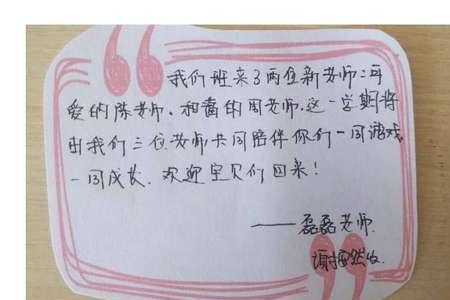 我们班来了两位新老师:可
爱的陈老师、和蔼的周老师.这一学期将
由我们三位老师共同陪伴你们一同游戏
一同成长.欢迎宝贝们回来!
——磊磊老师.
谢 然收.